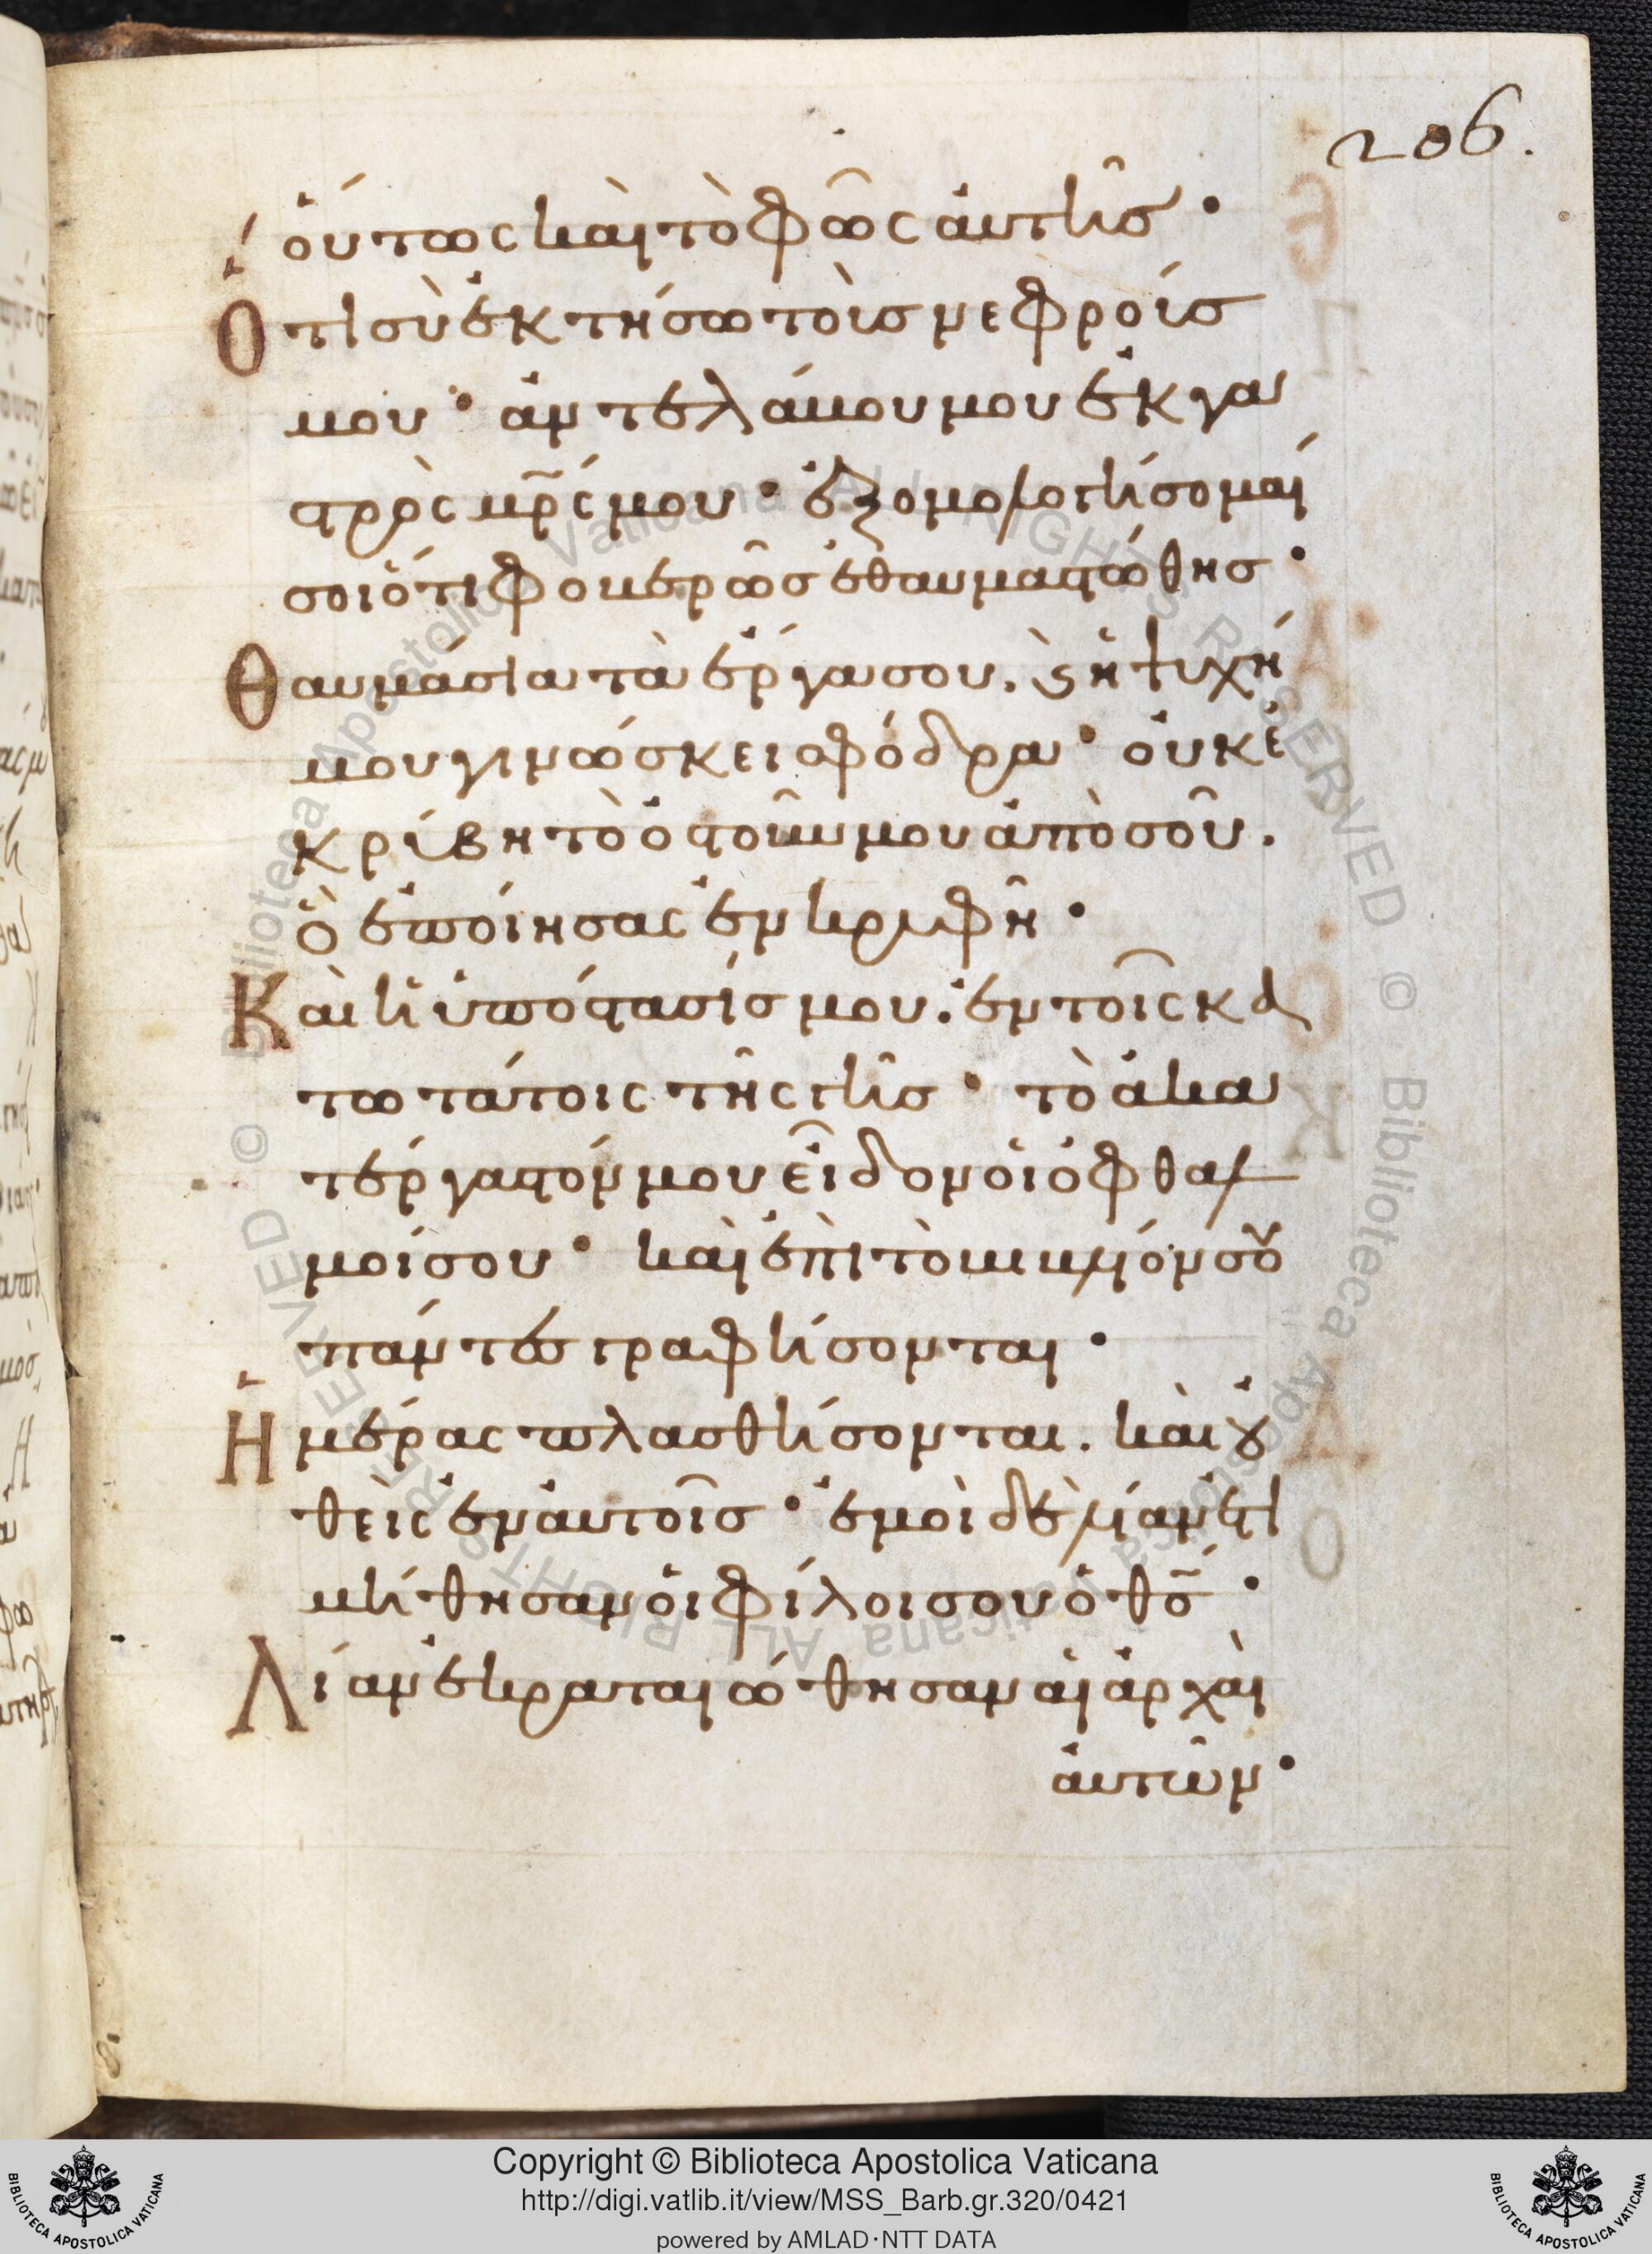 206.
ὁύτως καὶ τὸ φῶς ἀυτῆσ·
Ὅτι σὺ ἐκτήσω τοὺσ νεφρούσ
μου· ἀντελάβου μου ἐκ γα
στρὸς μρ̅ς μου· ἐξομολογήσομαί
σοι ὅτι φοβερῶσ ἐθαυμαστώθησ·
Θαυμάσια τὰ ἔργα σου. ϗ ἡ ψυχή
μου γινώσκει σφόδρα· ὀυκ ἐ
κρύβη τὸ ὀστοῦν μου ἀπὸ σοῦ.
ὃ ἐποίησας ἐν κρυφῆ·
Καὶ ἡ ὑπόστασίσ μου. ἐν τοῖς κα
τωτάτοις τῆς γῆσ· τὸ ἀκα
τέργαστόν μου εἶδον ὁι ὀφθαλ
μοί σου· καὶ ἐπὶ τὸ βιβλίον σȣ
πάντεσ γραφήσονται·
Ἡμέρας πλασθήσονται. καὶ ȣ
θεὶς ἐν ἀυτοῖσ· ἐμοὶ δὲ λίαν ἐτι
μήθησαν ὁι φίλοι σου ὁ θσ̅·
Λίαν ἐκραταιώθησαν ἁι ἀρχὰι
ἀυτῶν·
Copyright © Biblioteca Apostolica Vaticana
http://digi.vatlib.it/view/MSS_Barb.gr.320/0421
powered by AMLAD·NTT DATA